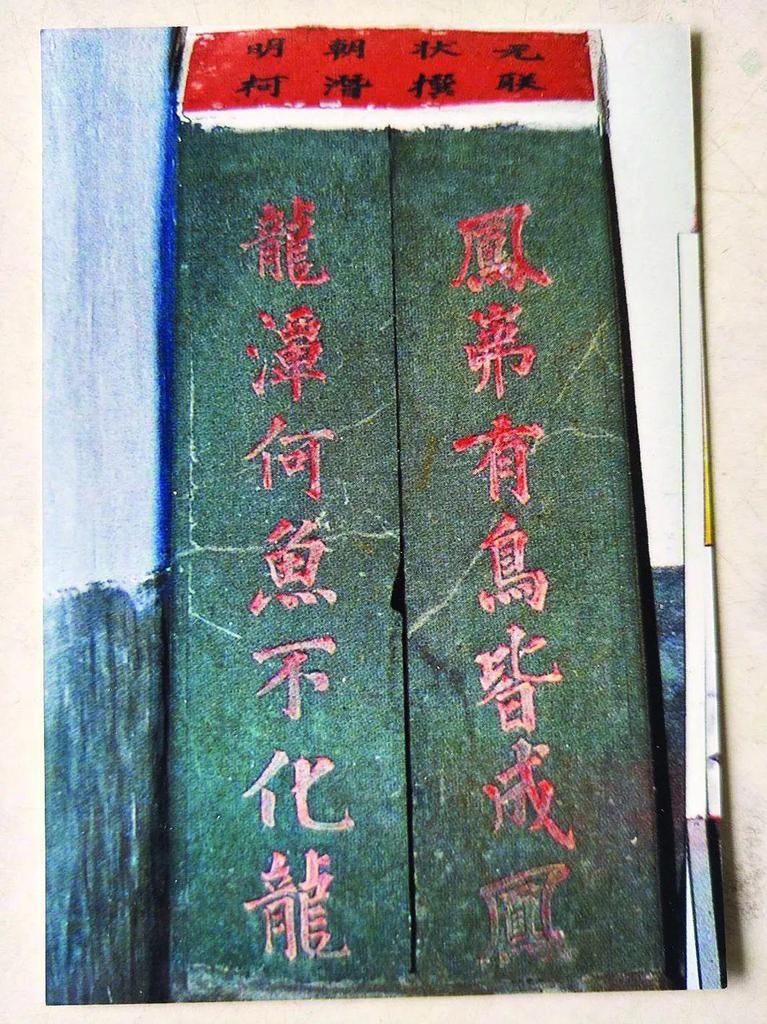 明朝状元
柯潛撰联
鳳岪有鳥皆成鳳
龍潭何魚不化龍